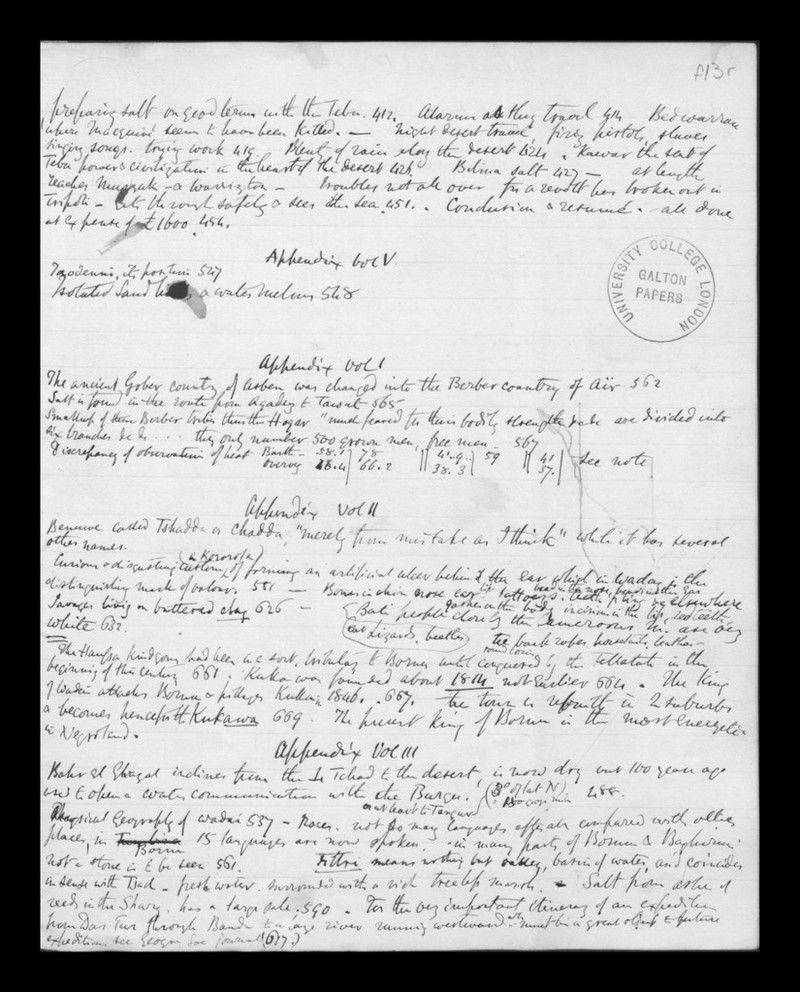 f13r
preparing salt on good terms with the Tebu. 412. Alarms as they travel 414 Bedwarram
where Macguire seems to have been killed. — Night desert travel, firing pistols, slaves
singing songs. trying work 419 Plenty of rain along the desert 424. Kawar the seat of
Tebu power & civilization in the heart of the desert 426. Bilma salt 427 — at length
reaches Murzuk — a Warrington — troubles not all over for a revolt has broken out in
Tripoli — gets through safely & sees the sea 451. . Conclusion & resumé. — all done
at expense of £1600. 454.
UNIVERSITY COLLEGE LONDON
GALTON PAPERS
Appendix Vol V.
its position 547
Isolated Sand & water melons 548
Appendix Vol I
The ancient Gober country of Asben was changed into the Berber country of Aïr 562
Salt is found in the route from Agadez to Tawat 565
Smallest of them Berber tribes thus the Hogar "much feared for their bodily strength" &c &c are divided into
six branches &c &c . . . . they only number 500 grown men, free men — 567
Discrepancy of observations of heat Barth — 78 41.9 59 41 see note
Overweg 66.2 38.3 37.
Appendix Vol II
Benuwe called Tshadda or Chadda, "merely from mistake as I think" while it has several
other names.
(in Kororofa)
Curious & disgusting custom of forming an artificial ulcer behind the ear which in Waday is the
distinguishing mark of 581 — Bones in chin nose ear elsewhere
Savages living on battered clay 626 — Bali people closely the Cameroons men are very
white 632. (eat lizards, beetles)
The Haussa kindgoms had been in a sort tributary to Bornu until conquered by the Fellatah in the
beginning of this century 661. Kuka was founded about 1814 not earlier 664 — The King
of Wadai attacks Bornu & pillages Kuka in 1846. . 667. the town is rebuilt in 2 suburbs
& becomes henceforth Kukawa 669. The present King of Bornu is the most energetic
in Negroland.
Appendix Vol III
Bahr el Ghazal inclines from the L Tchad to the desert, is now dry but 100 years ago
used to open a water communication with the Burgu. (3° of lat N) 488.
or at least to
Physical Geography of Wadai 537 — Races. not so many languages compared with other
places, in Bornu 15 languages are now spoken. — in many parts of Bornu & Baghirmi
not a stone is to be seen 561. Fittri means nothing but valley, basin of water, and coincides
in sense with Tsad — fresh water. surrounded with a rich treeless marsh. — Salt from ashes of
reeds in the Shary. has a large sale, 590 — For the very important itinerary of an expedition
from Dar Fur through Banda to a large river running westward — must be a great object to future
expeditions see Geogr. Soc Journal (617.)